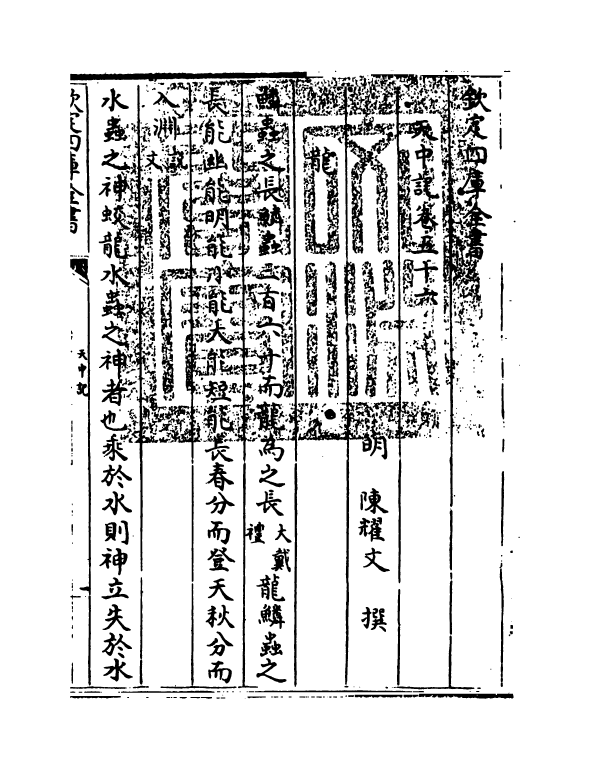 欽定四庫全書
天中記卷五十六
明 陳耀文 撰
龍
鱗蟲之長鱗蟲三百六十而龍為之長大戴禮龍鱗蟲之
長能幽能明能小能大能短能長春分而登天秋分而
入淵說文
水蟲之神蛟龍水蟲之神者也乘於水則神立失於水
欽定四庫全書
天中記